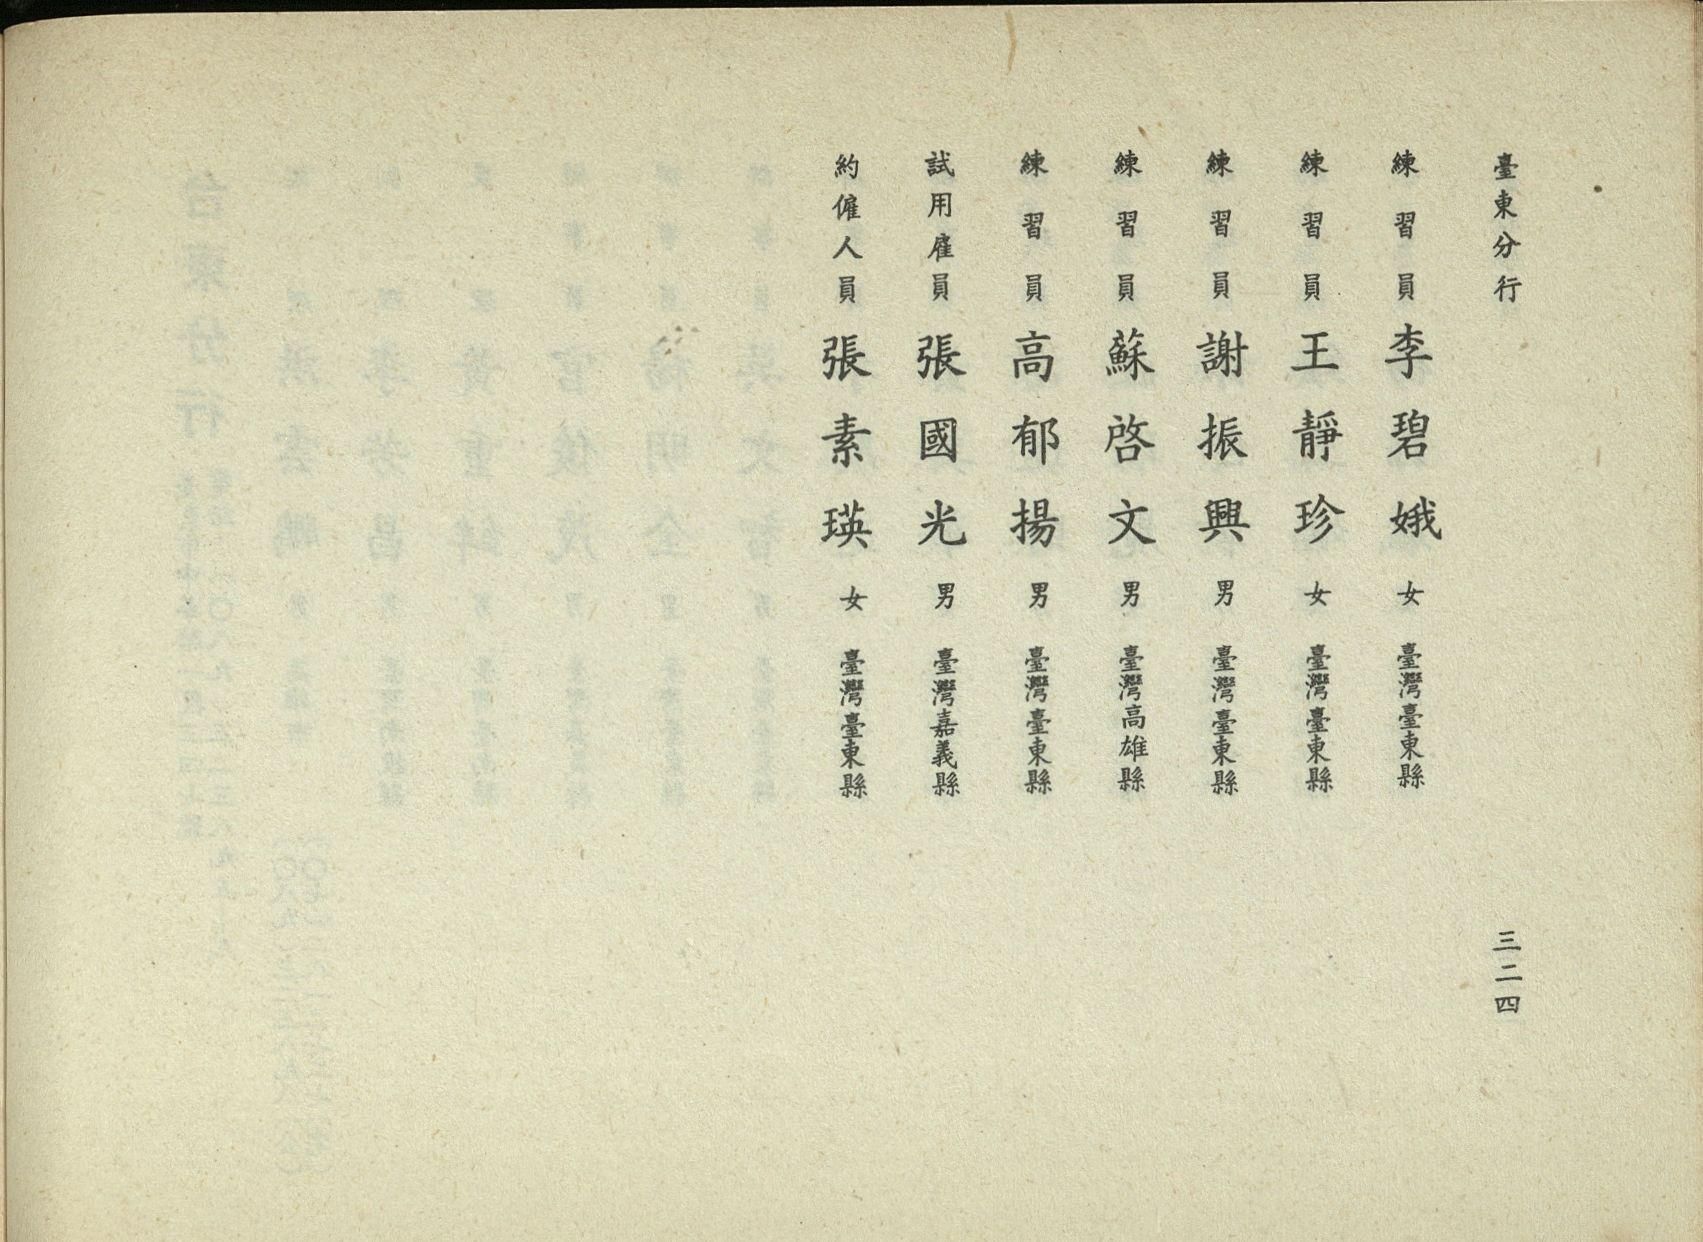 臺東分行
三二四
練習員 李碧娥 女 臺灣臺東縣
練習員 王靜珍 女 臺灣臺東縣
練習員 謝振興 男 臺灣臺東縣
練習員 蘇啓文 男 臺灣高雄縣
練習員 高郁揚 男 臺灣臺東縣
試用雇員 張國光 男 臺灣嘉義縣
約僱人員 張素瑛 女 臺灣臺東縣